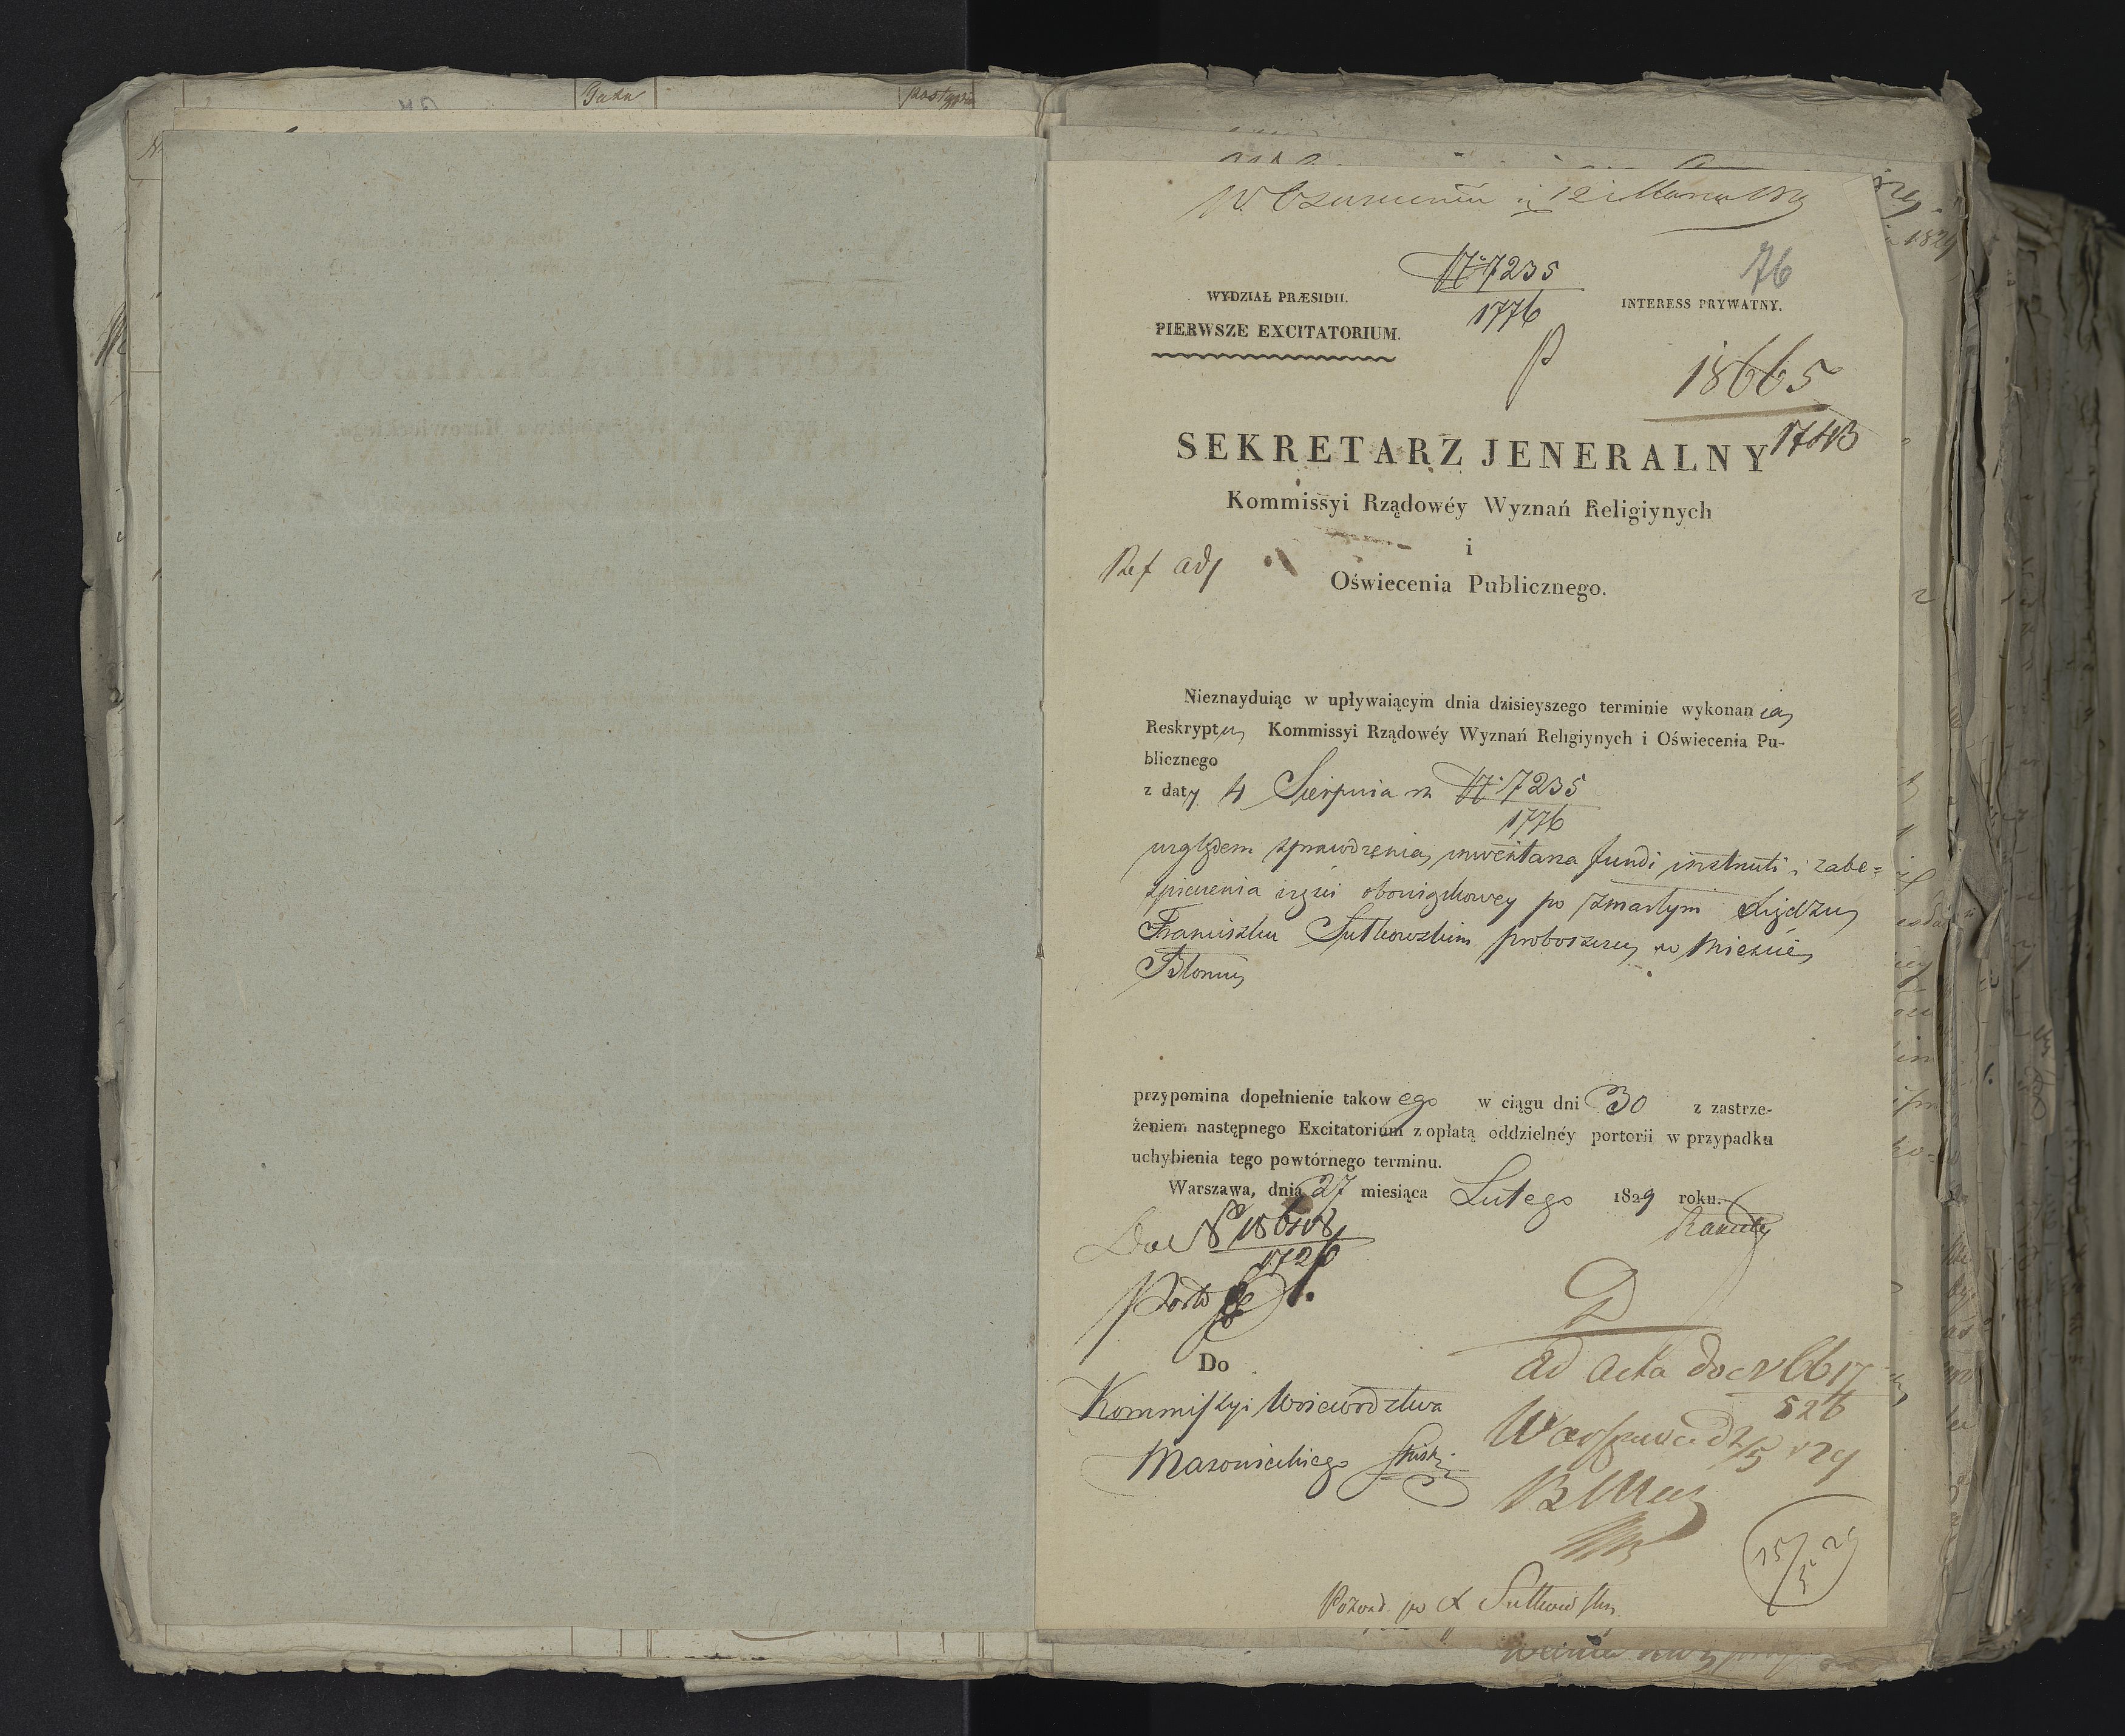 12 Marca
No 7235
1776
76
WYDZIAŁ PRÆSIDII.
INTERESS PRYWATNY.
PIERWSZE EXCITATORIUM.
18665
SEKRETARZ JENERALNY
Kommissyi Rządowéy Wyznań Religiynych
i
Ref adj
Oświecenia Publicznego.
Nieznayduiąc w upływaiącym dnia dzisieyszego terminie wykonania
Reskryptu Kommissyi Rządowéy Wyznań Religiynych i Oświecenia Pu-
blicznego
z daty 4 Sierpnia No 7235
1776
względem sprawdzenia inwentarza fundi instructi i zabe=
spieczenia części obowiązkowey po zmarłym Xiędzu
Franciszku Sutkowskim proboszczu w Mieście
Błoniu
przypomina dopełnienie takowego w ciągu dni 30 z zastrze-
żeniem następnego Excitatorium z opłatą oddzielnéy portorii w przypadku
uchybienia tego powtórnego terminu.
Warszawa, dnia 27 miesiąca Lutego 1829 roku.
1726
Porto
Do
Kommissyi Woiewództwa
Mazowieckiego
ad acta
526
po X Sutkowskim